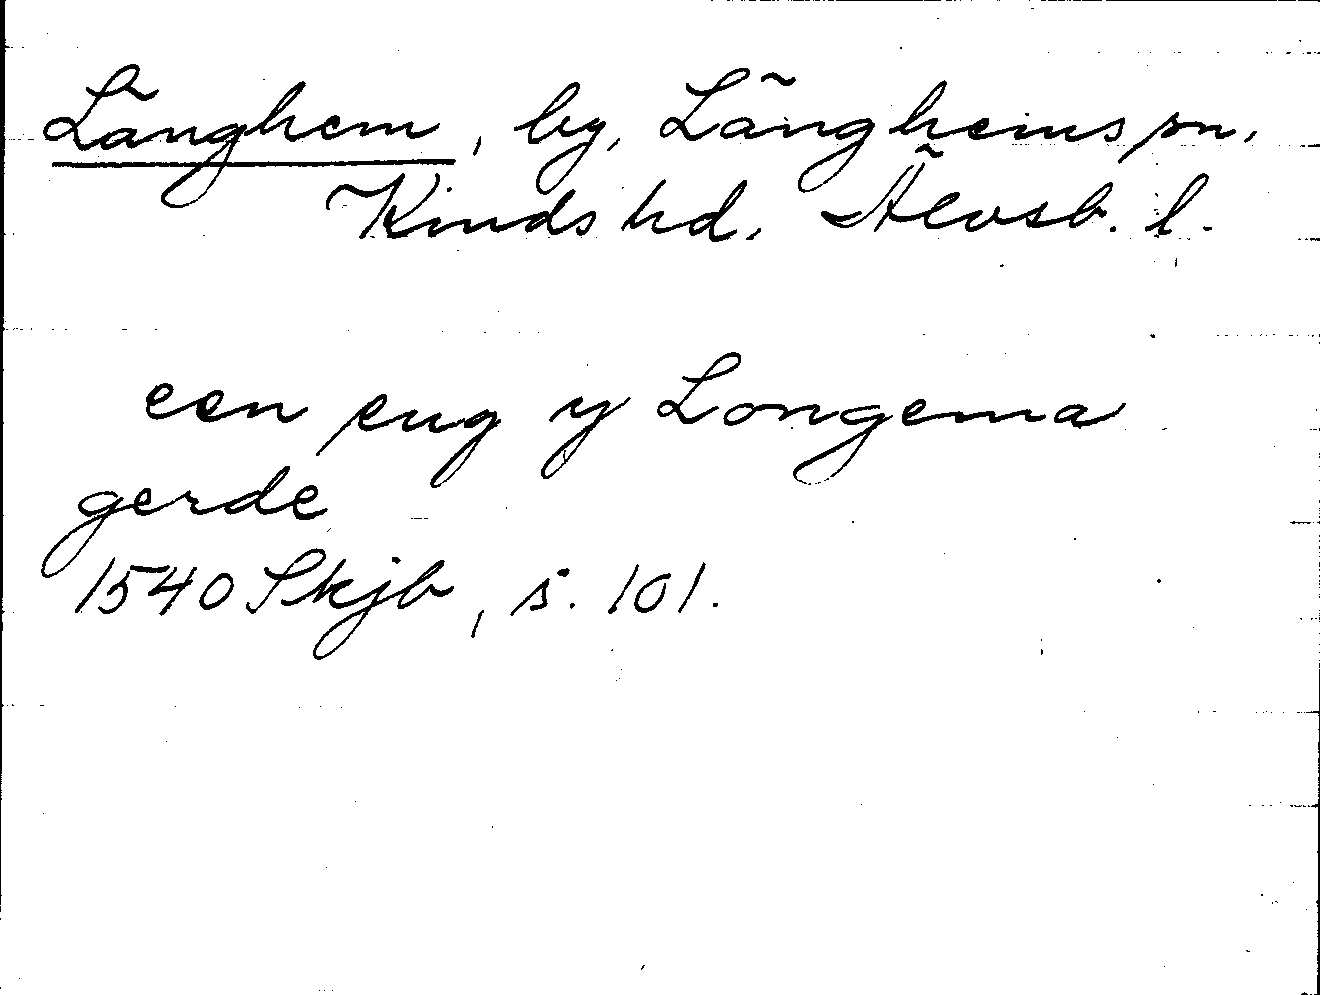 Länghem, by, Länghems sn,
Kinds hd, Älvsb. l.
een eug y Longema
gerde
1540 Skjb, s. 101.